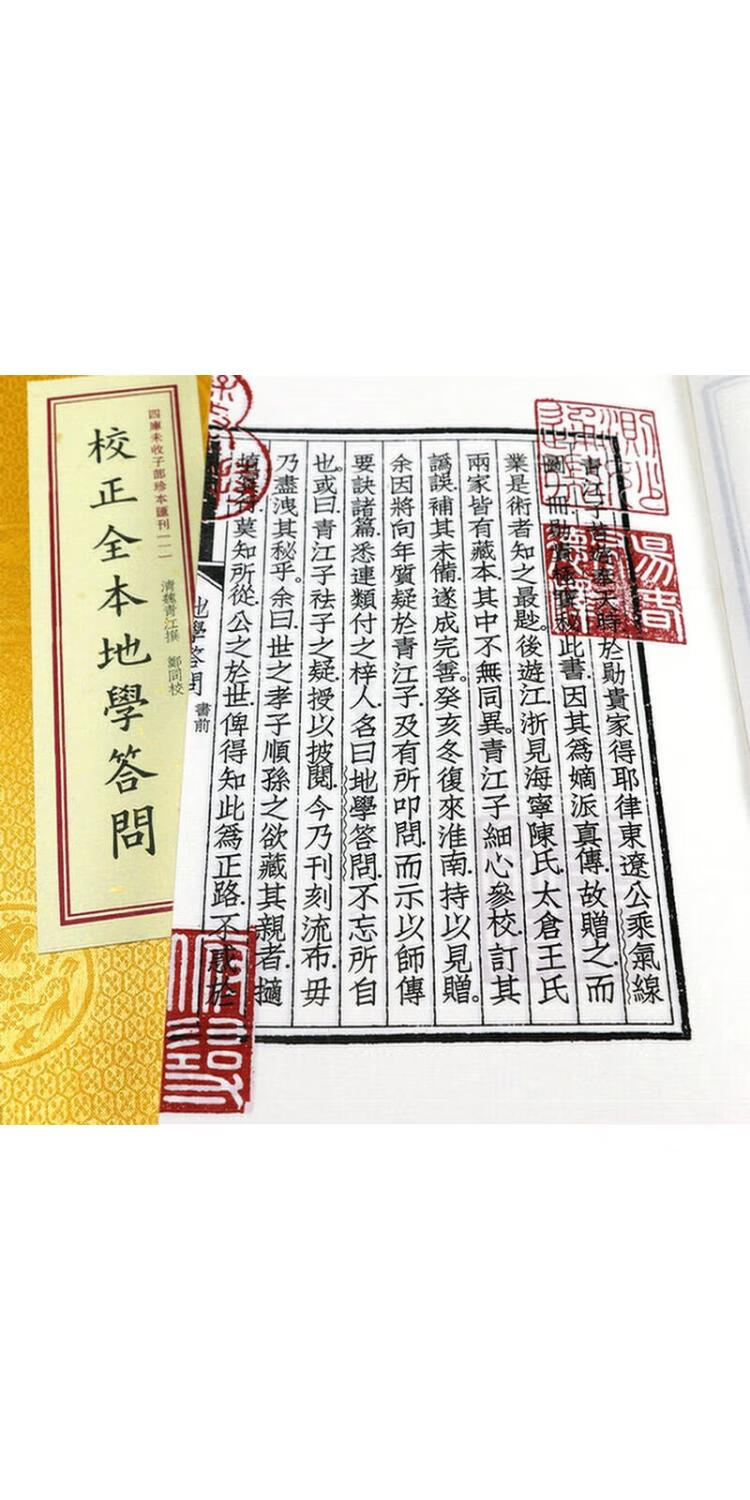 青江子昔遊奉天時於勛貴家得耶律東遼公乘氣線
此書因其為嫡派真傳故贈之而
業是術者知之最尠後遊江浙見海寧陳氏太倉王氏
兩家皆有藏本其中不無同異青江子細心參校訂其
譌誤補其未備遂成完善癸亥冬復來淮南持以見贈
余因將向年質疑於青江子及有所叩問而示以師傳
要訣諸篇悉連類付之梓人名曰地學答問不忘所自
也或曰青江子祛子之疑授以披閱今乃刊刻流布毋
乃盡洩其秘乎余曰世之孝子順孫之欲藏其親者擿
莫知所從公之於世俾得知此為正路不惑於
地學答問
書前
四庫未收子部珍本匯刊
校正全本地學答問
清魏青江撰 鄭同校